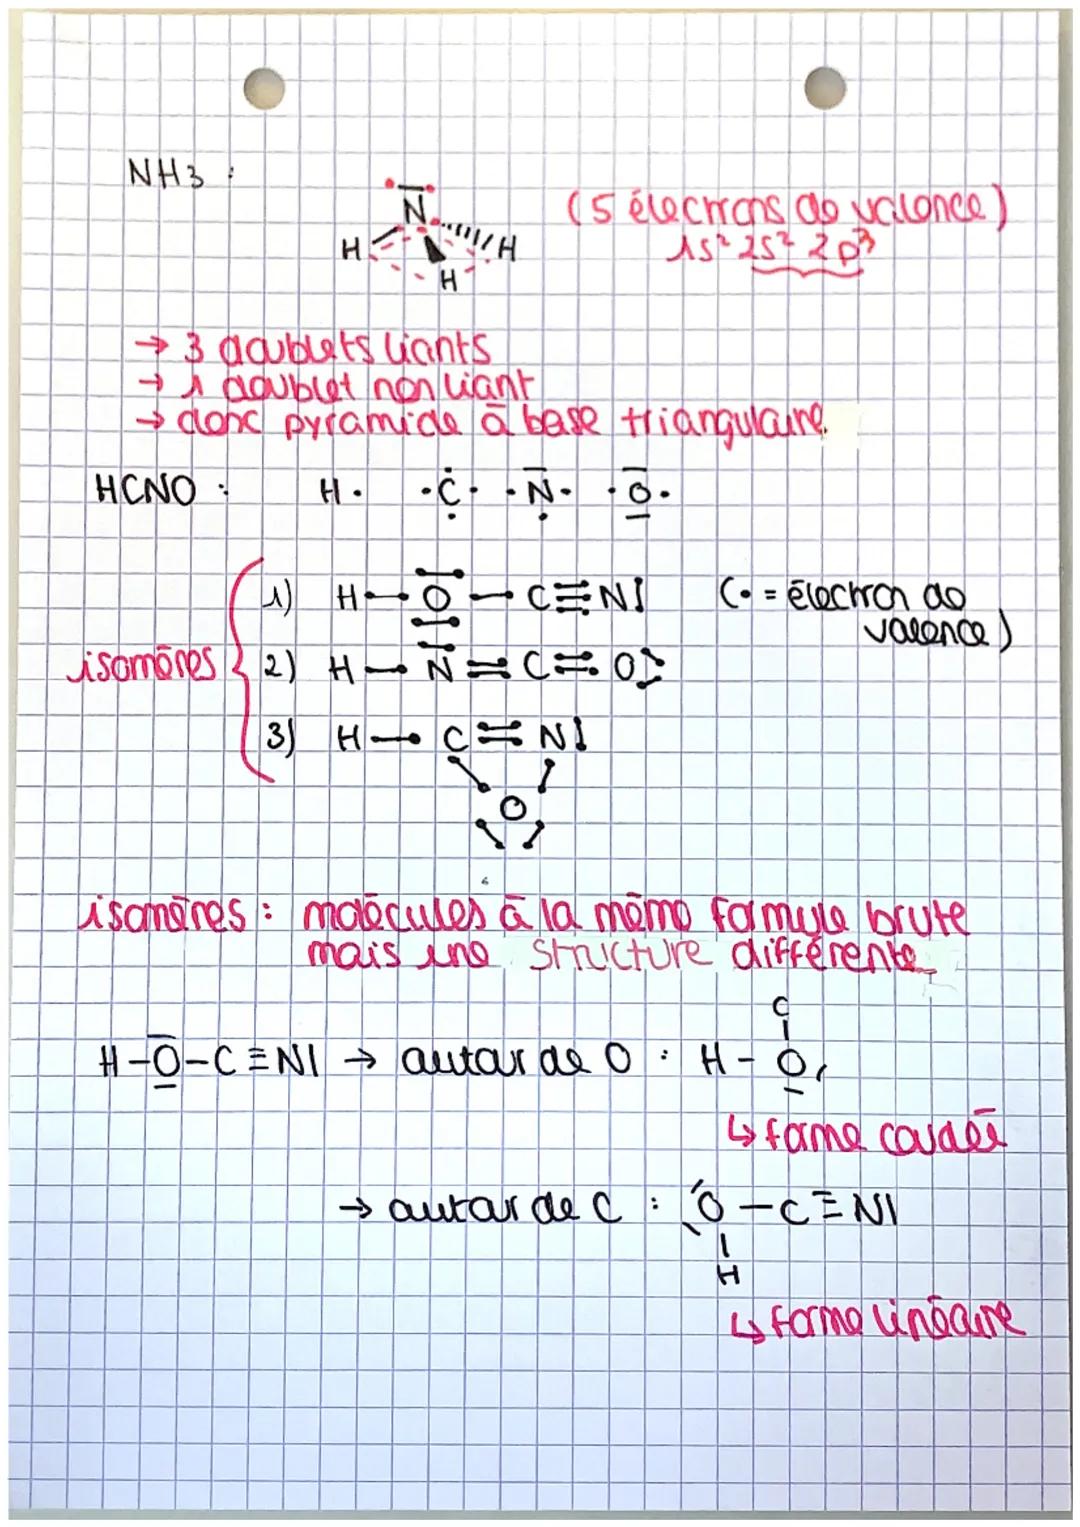 NH3 :
N
H
H
H
(5 électrons de valence)
1s² 2s² 2p³
→ 3 doublets liants
→ 1 doublet non liant
→ donc pyramide à base triangulaire.
HCNO : H· ·C· ·N· ·O·
isomères
1) H—O—C≡N| (• = électron de
valence)
2) H—N=C=O
3) H—C=N|
O
isomères : molécules à la même formule brute
mais une structure différente
H-O-C≡N| → autour de O : H-O
C
↳ forme coudée
→ autour de C : O-C≡N|
H
↳ forme linéaire